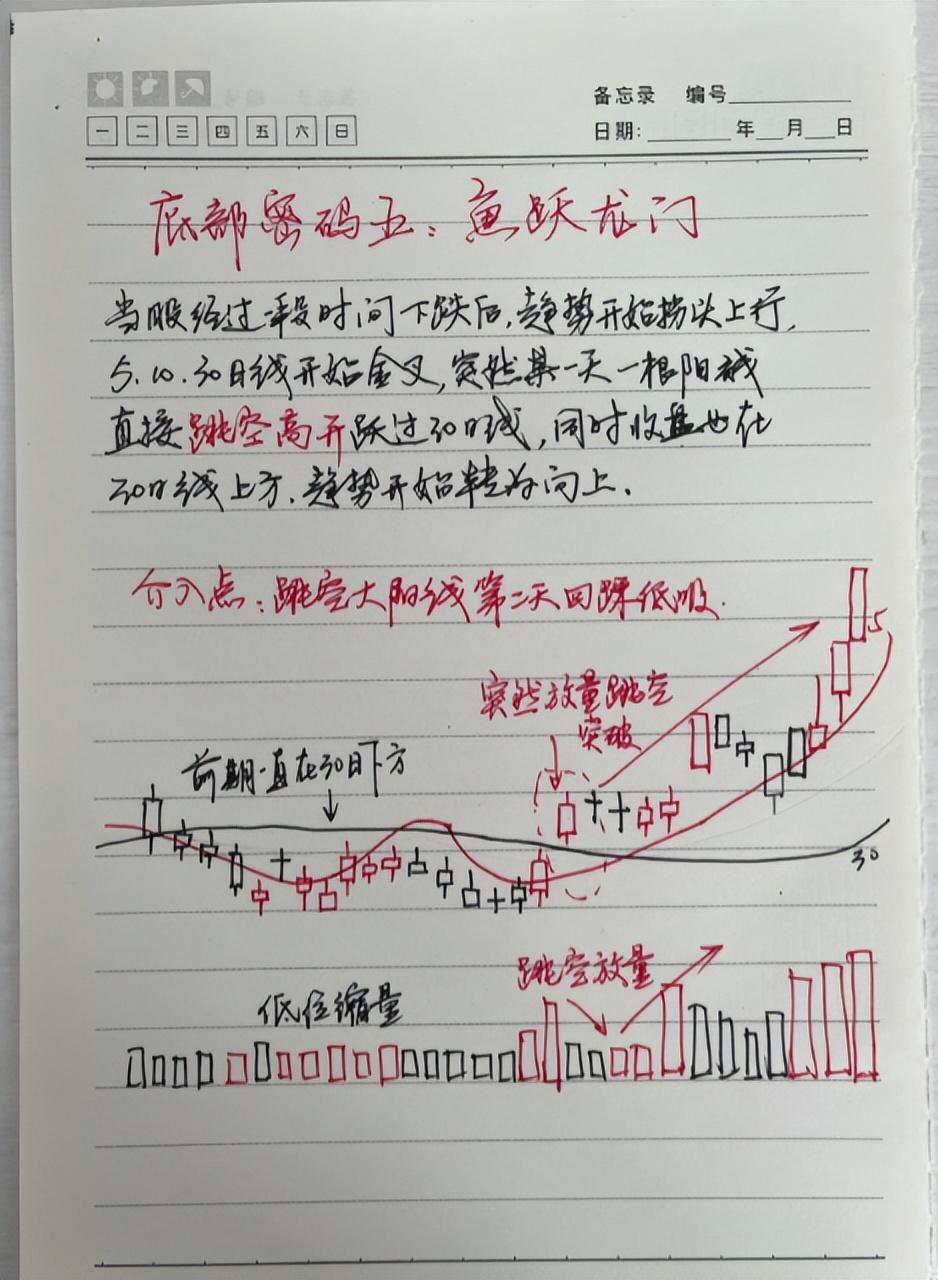 备忘录 编号
一 二 三 四 五 六 日
日期: 年 月 日
底部密码五:鱼跃龙门
当股经过一段时间下跌后,趋势开始拐头上行,
5.10.30日线开始金叉,突然某一天一根阳线
直接跳空高开跃过30日线,同时收盘也在
30日线上方.趋势开始转为向上.
介入点:跳空大阳线第二天回踩低吸.
5
突然放量跳空
突破
前期一直在30日下方
30
跳空放量
低位缩量